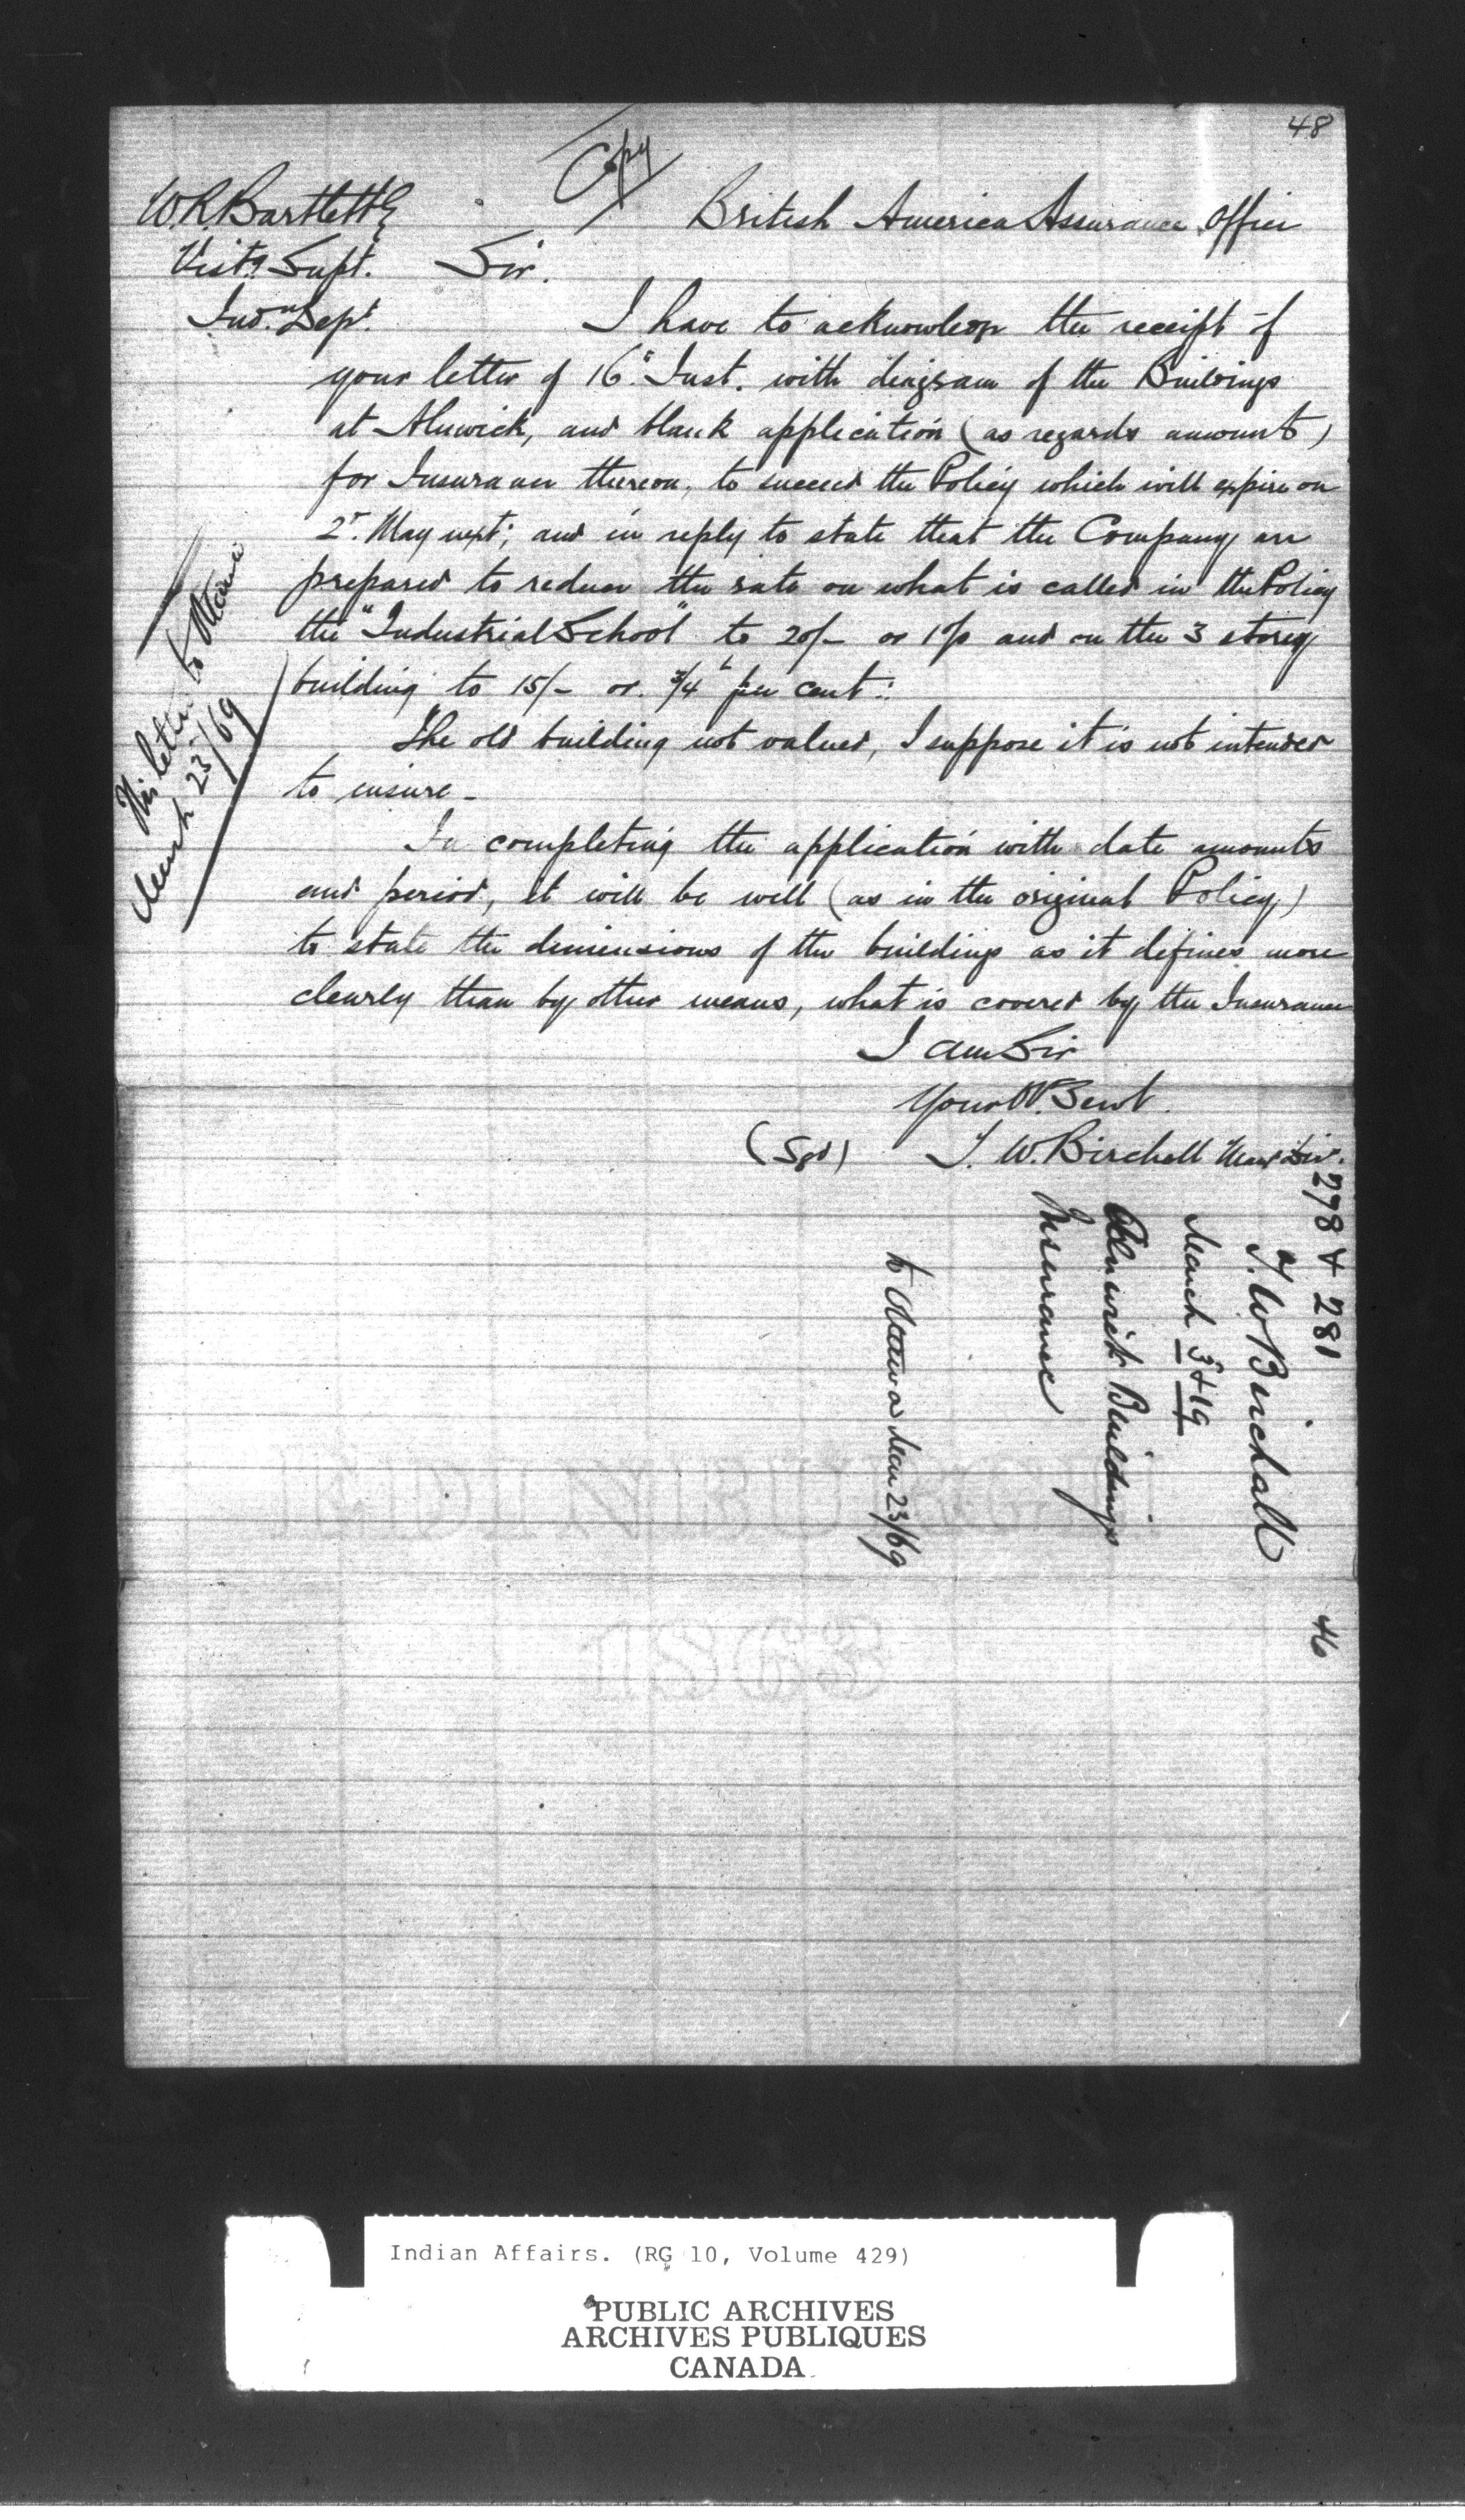 48
Copy
W R Bartlett Esq
British America Assurance Office
Visitg Supt.
Sir.
Indn Dept.
I have to acknowledge the receipt of
your letter of 16th Inst. with diagram of the Buildings
at Alnwick, and blank application (as regards amount)
for Insurance thereon, to succeed the Policy which will expire on
2d. May next; and in reply to state that the Company are
prepared to reduce the rate on what is called in the Policy
the "Industrial School" to 20/- or 1 p and on the 3 storey
building to 15/- or 3/4 per cent:
The old building not valued, I suppose it is not intended
to insure -
In completing the application with date amounts
and period, it will be well (as in the original Policy)
to state the dimensions of the buildings as it defines more
clearly than by other means, what is covered by the Insurance
I am Sir
Your Ob. Servt.
(Sgd) T. W. Birchall
His letter to Ottawa
March 23/69
278 & 281
of
T. W Birchall
March 3 & 19
Alnwick Buildings
Insurance
to Ottawa Mar 23/69
46
Indian Affairs. (RG 10, Volume 429)
PUBLIC ARCHIVES
ARCHIVES PUBLIQUES
CANADA